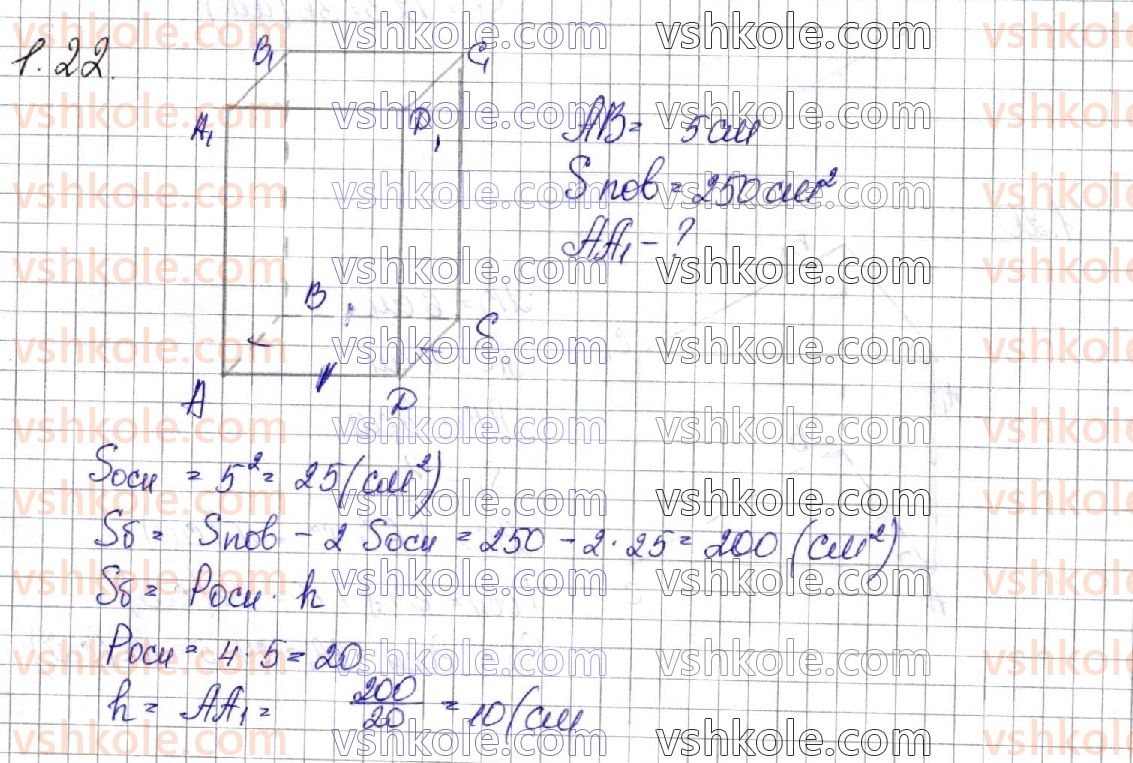 1.22.
B₁ C₁
A₁ D₁
AB = 5 см
Sпов = 250 см²
AA₁ - ?
B
C
A D
Sосн = 5² = 25 (см²)
Sб = Sпов - 2 Sосн = 250 - 2 · 25 = 200 (см²)
Sб = Pосн · h
Pосн = 4 · 5 = 20
h = AA₁ = 200/20 = 10 (см
vshkole.com